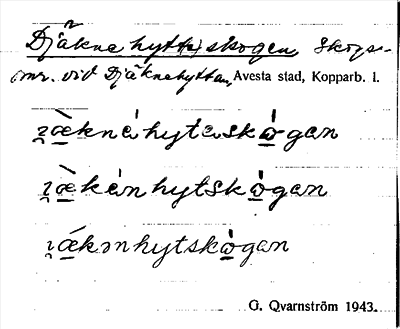 Djäknehytt(e)skogen, skogs-
omr. vid Djäknehyttan, Avesta stad, Kopparb. l.
ɪ̯æ̀knéhytɛskò̤gan
ɪ̯æ̀kénhytskò̤gan
ɪ̯ǽkɔnhytskò̤gan
G. Qvarnström 1943.